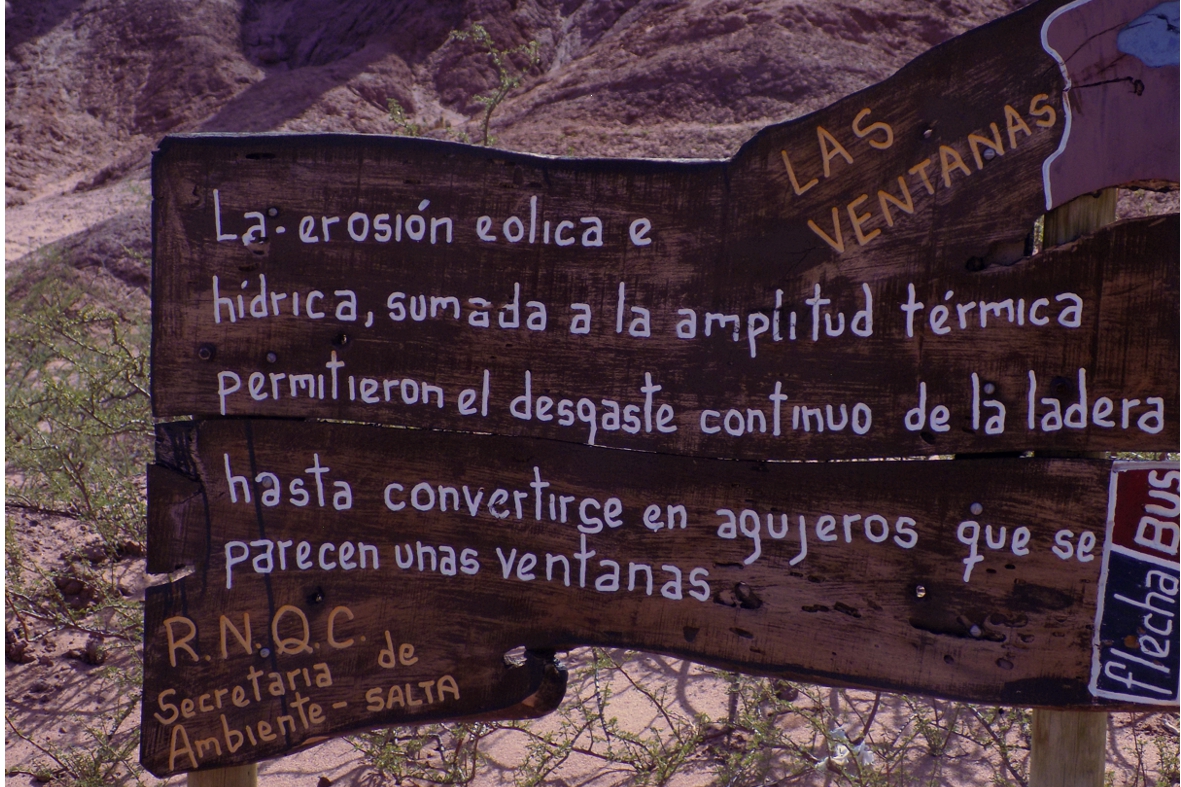 LAS
VENTANAS
La erosión eolica e
hídrica, sumada a la amplitud térmica
permitieron el desgaste continuo de la ladera
hasta convertirse en agujeros que se
parecen unas ventanas
R.N.Q.C.
Secretaria de
Ambiente - SALTA
flecha Bus